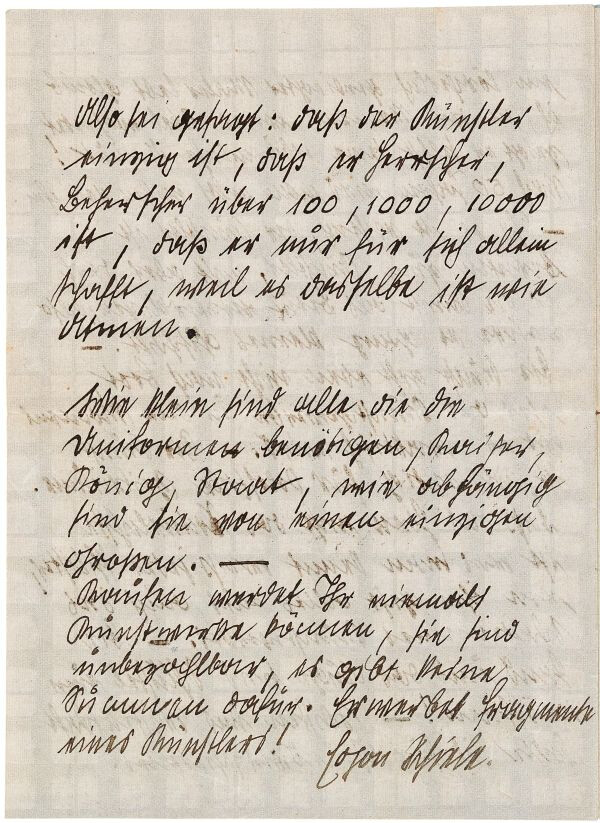 Also sei gesagt: daß der Künstler
einzig ist, daß er Herrscher,
Beherscher über 100, 1000, 10000
ist, daß er nur für sich allein
schafft, weil es dasselbe ist wie
atmen.
Wie klein sind alle die die
Uniformen benötigen, Kaiser,
König, Staat, wie abhängig
sind sie von einen einzigen
Großen. —
Kaufen werdet Ihr niemals
Kunstwerke können, sie sind
unbezahlbar, es gibt keine
Summen dafür. Erwerbet Fragmente
eines Künstlers!
Egon Schiele.